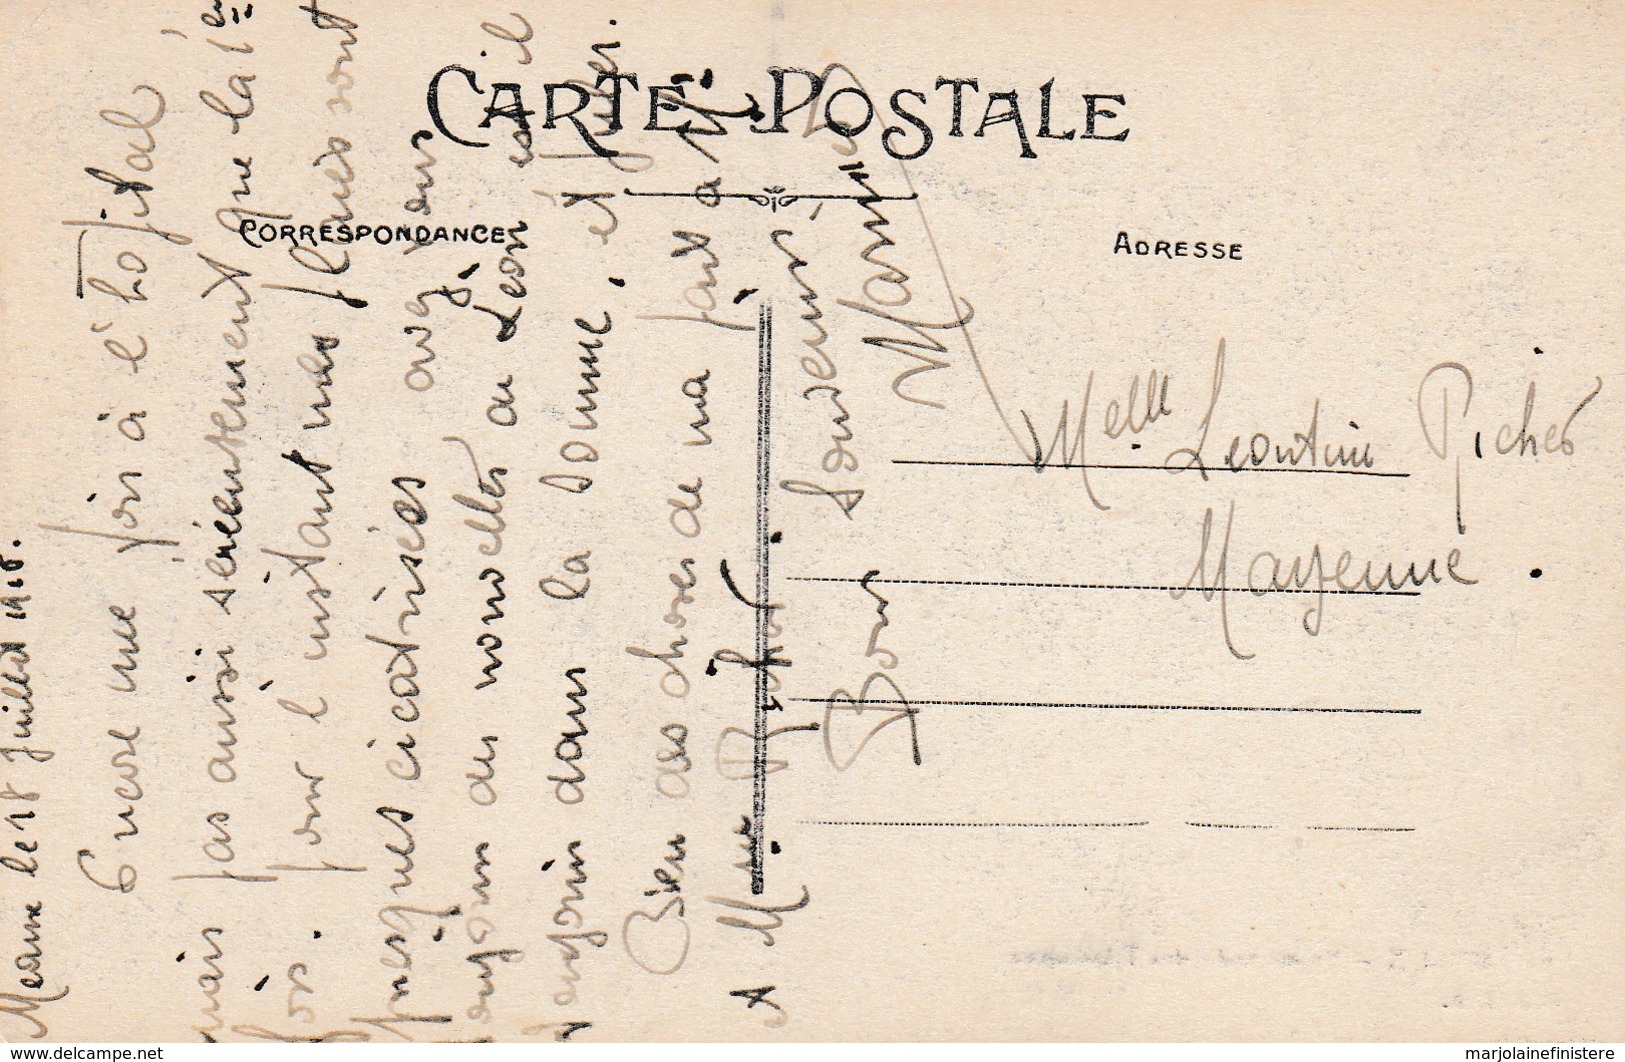 CARTE POSTALE
CORRESPONDANCE
ADRESSE
le 18 Juillet 1916.
Encore une fois à l'hopital
mais pas aussi sérieusement que la 1ère
fois. pour l'instant mes plaies sont
presques cicatrisées avez vous
toujours des nouvelles de Léon est il
toujours dans la Somme, et
Bien des choses de ma part à Mr
A Mme Richer.
Bon Souvenir
Melle Leontine Richer
Mayenne.
www.delcampe.net
marjolainefinistere